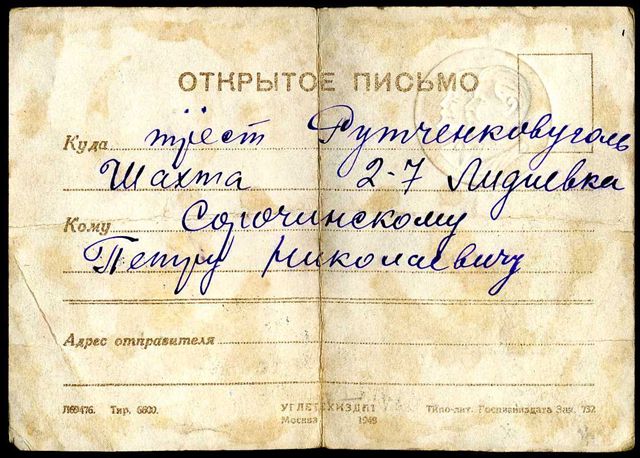 ОТКРЫТОЕ ПИСЬМО
Куда трест Рутченковуголь
Шахта 2-7 Лидиевка
Кому Сорочинскому
Петру Николаевичу
Адрес отправителя
Л69476. Тир. 6600. УГЛЕТЕХИЗДАТ Типо-лит. Госпланиздата Зак. 737.
Москва 1949